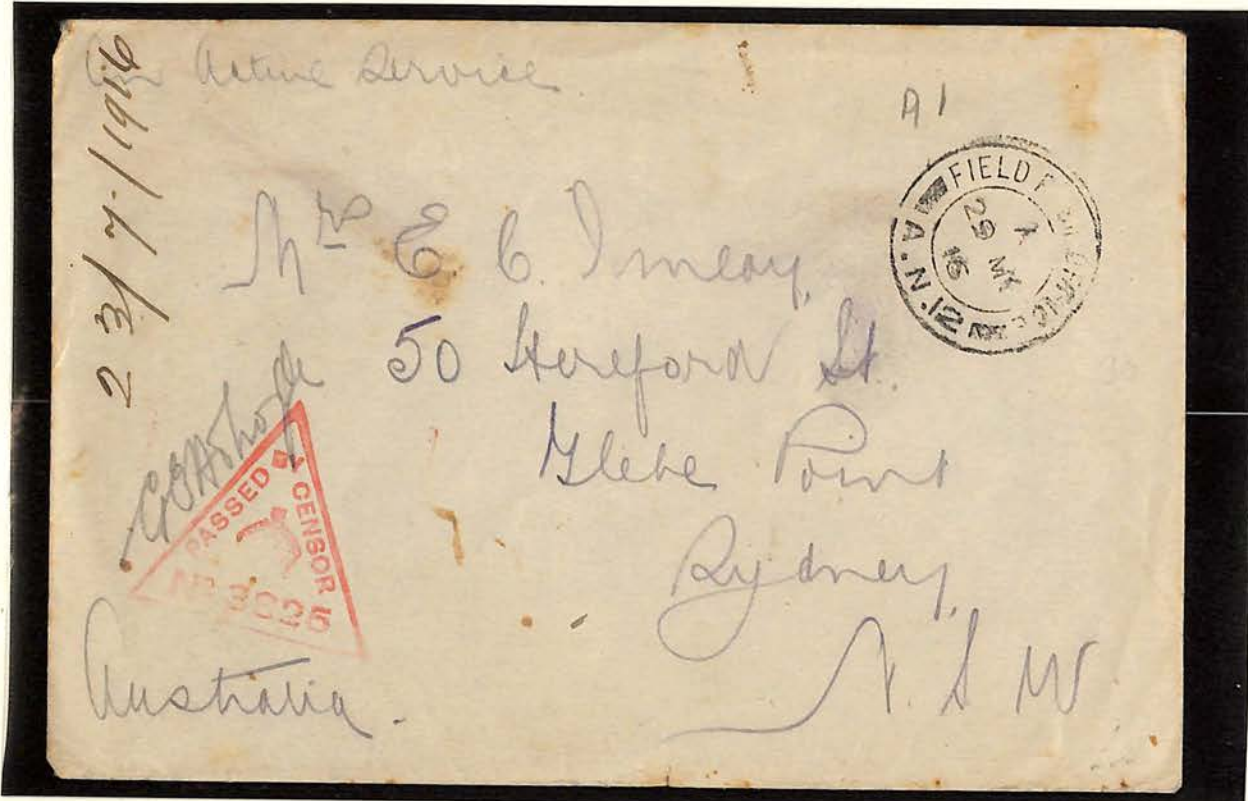 On Active Service
23/7/1916
A1
FIELD POST OFFICE
A
29 MY
16
A.N.12
Mrs E. C. Imlay,
50 Hereford St.
Glebe Point
Sydney,
N. S. W
PASSED BY CENSOR
No 3326
Australia.